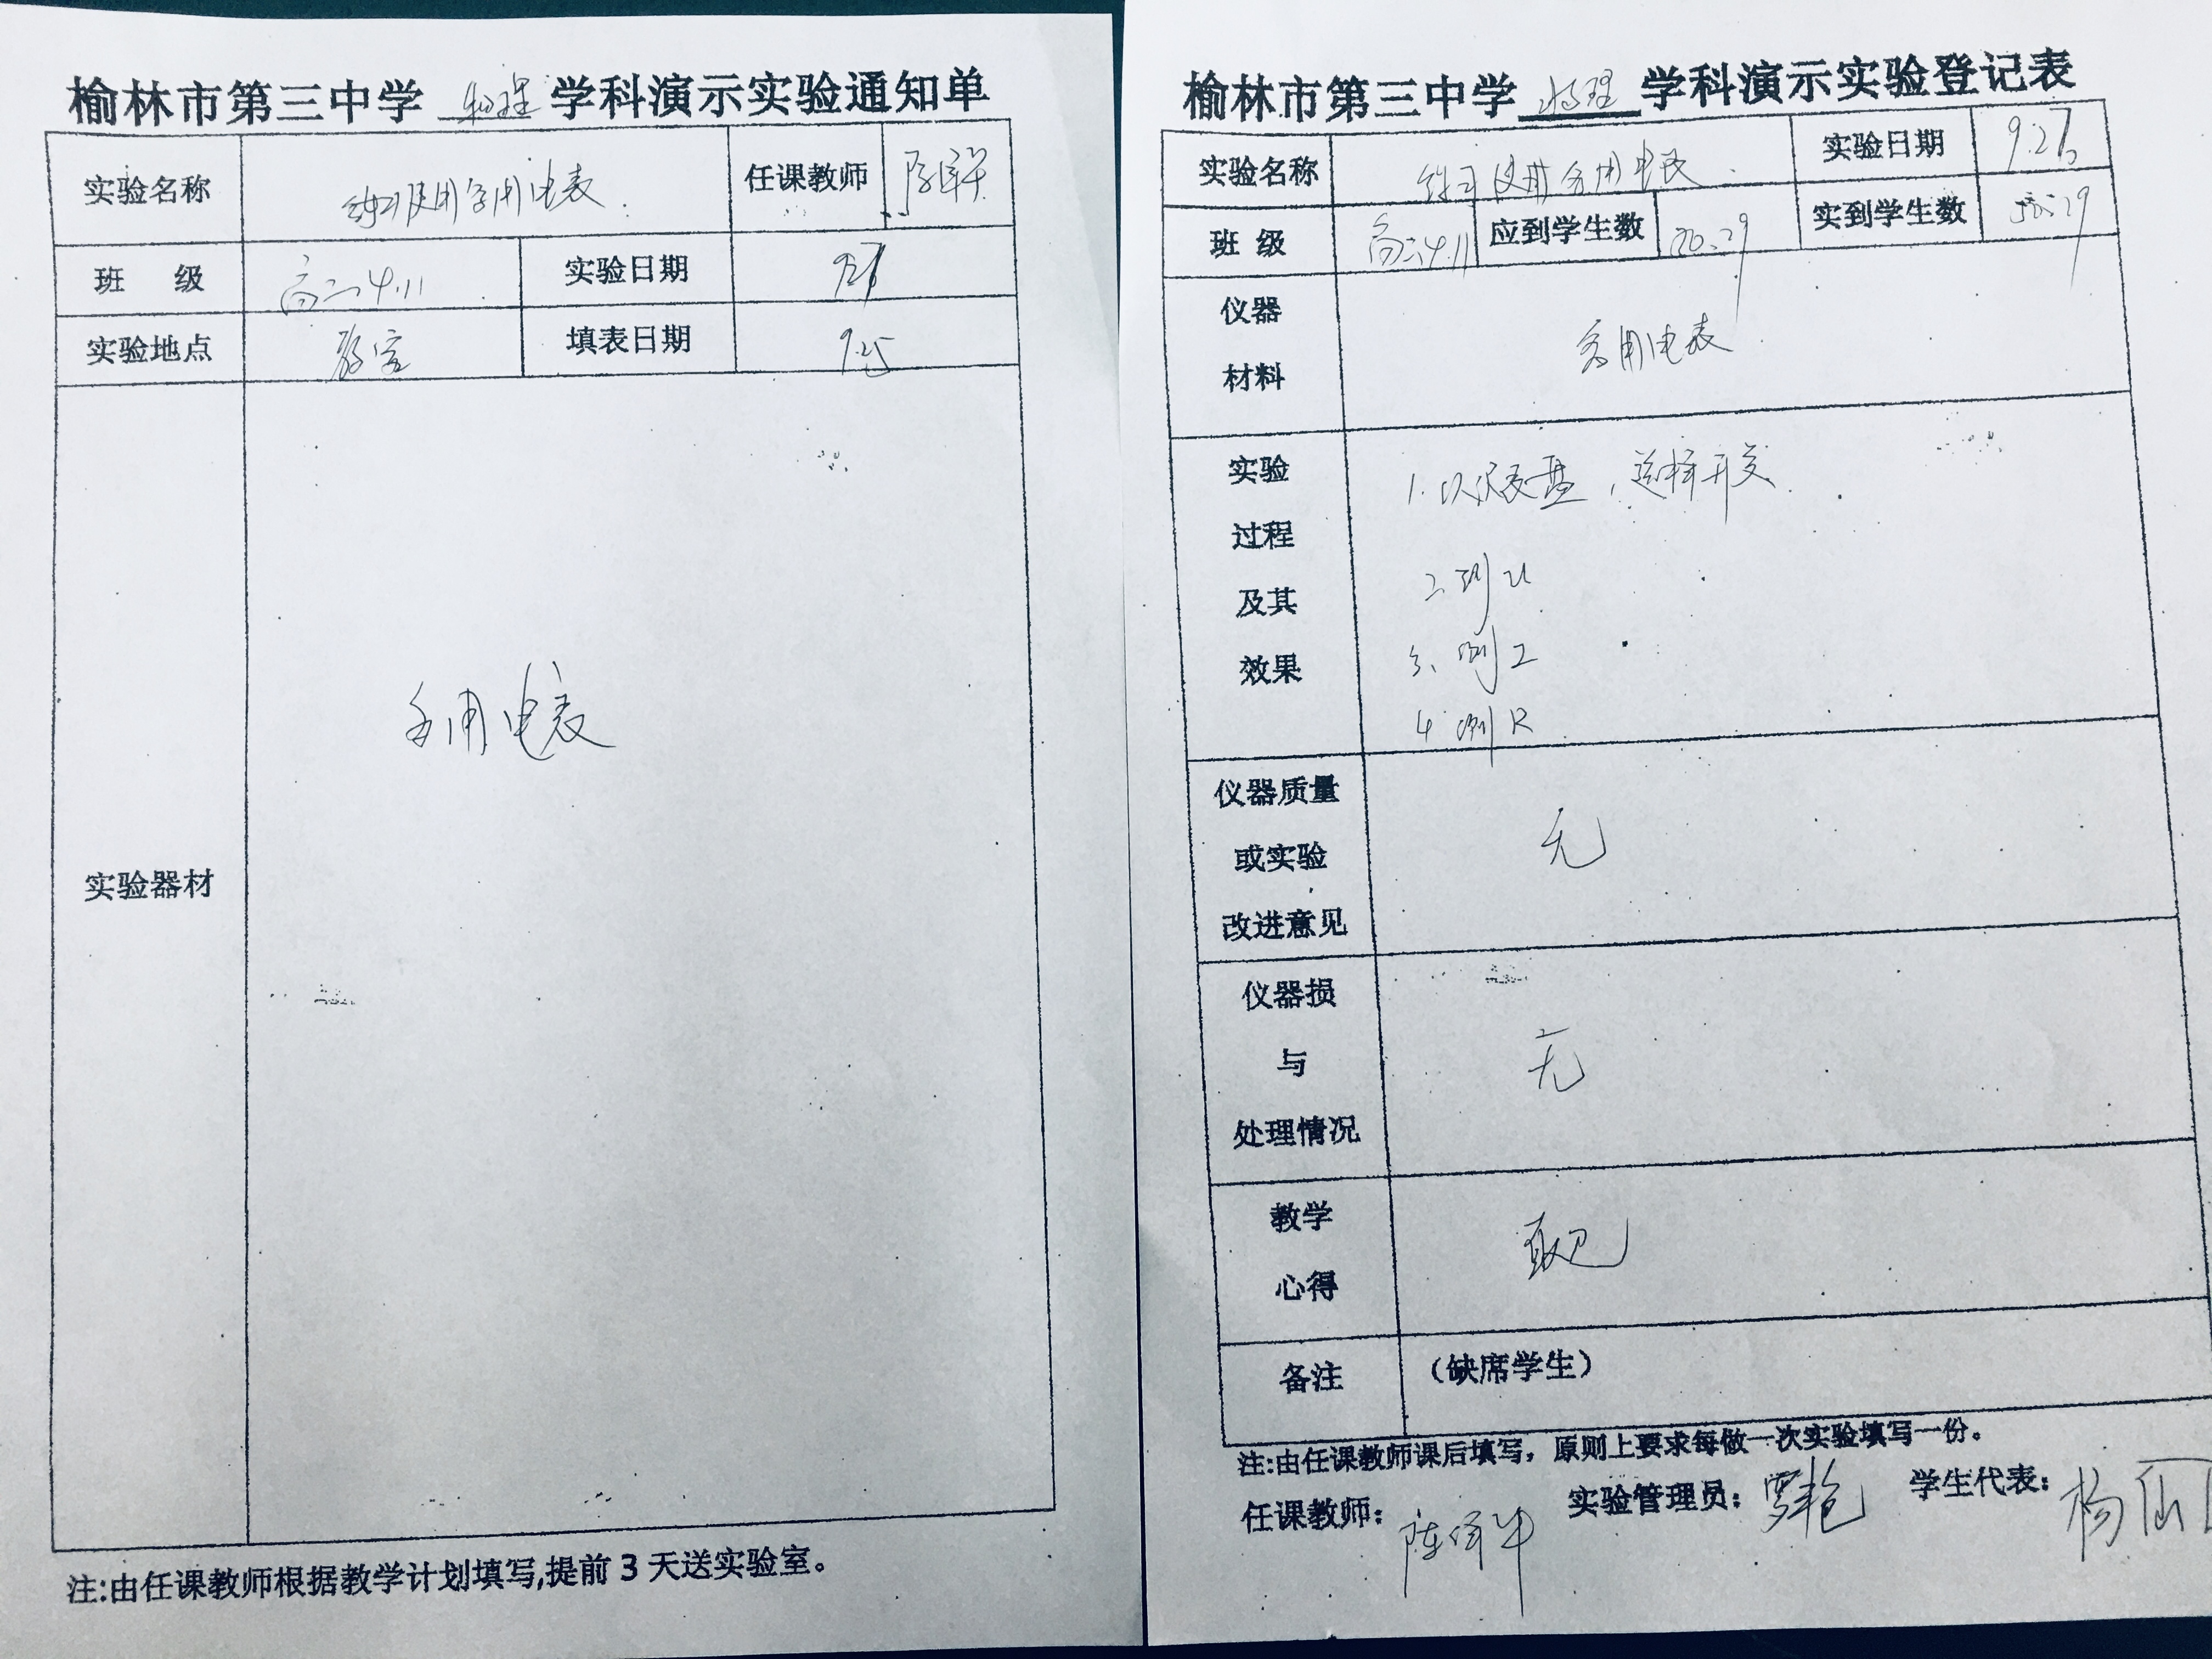 榆林市第三中学 物理 学科演示实验通知单
实验名称 练习使用多用电表 任课教师
班 级 高二4.11 实验日期 9.27
实验地点 教室 填表日期 9.25
实验器材 多用电表
注:由任课教师根据教学计划填写,提前3天送实验室。
榆林市第三中学 物理 学科演示实验登记表
实验名称 练习使用多用电表 实验日期 9.27
班 级 高二4.11 应到学生数 实到学生数
仪器
材料
多用电表
实验
过程
及其
效果
1. 认识表盘,选择开关
2. 测U
3. 测I
4. 测R
仪器质量
或实验
改进意见
无
仪器损
与
处理情况
无
教学
心得
备注 (缺席学生)
注:由任课教师课后填写,原则上要求每做一次实验填写一份。
任课教师: 实验管理员: 学生代表: